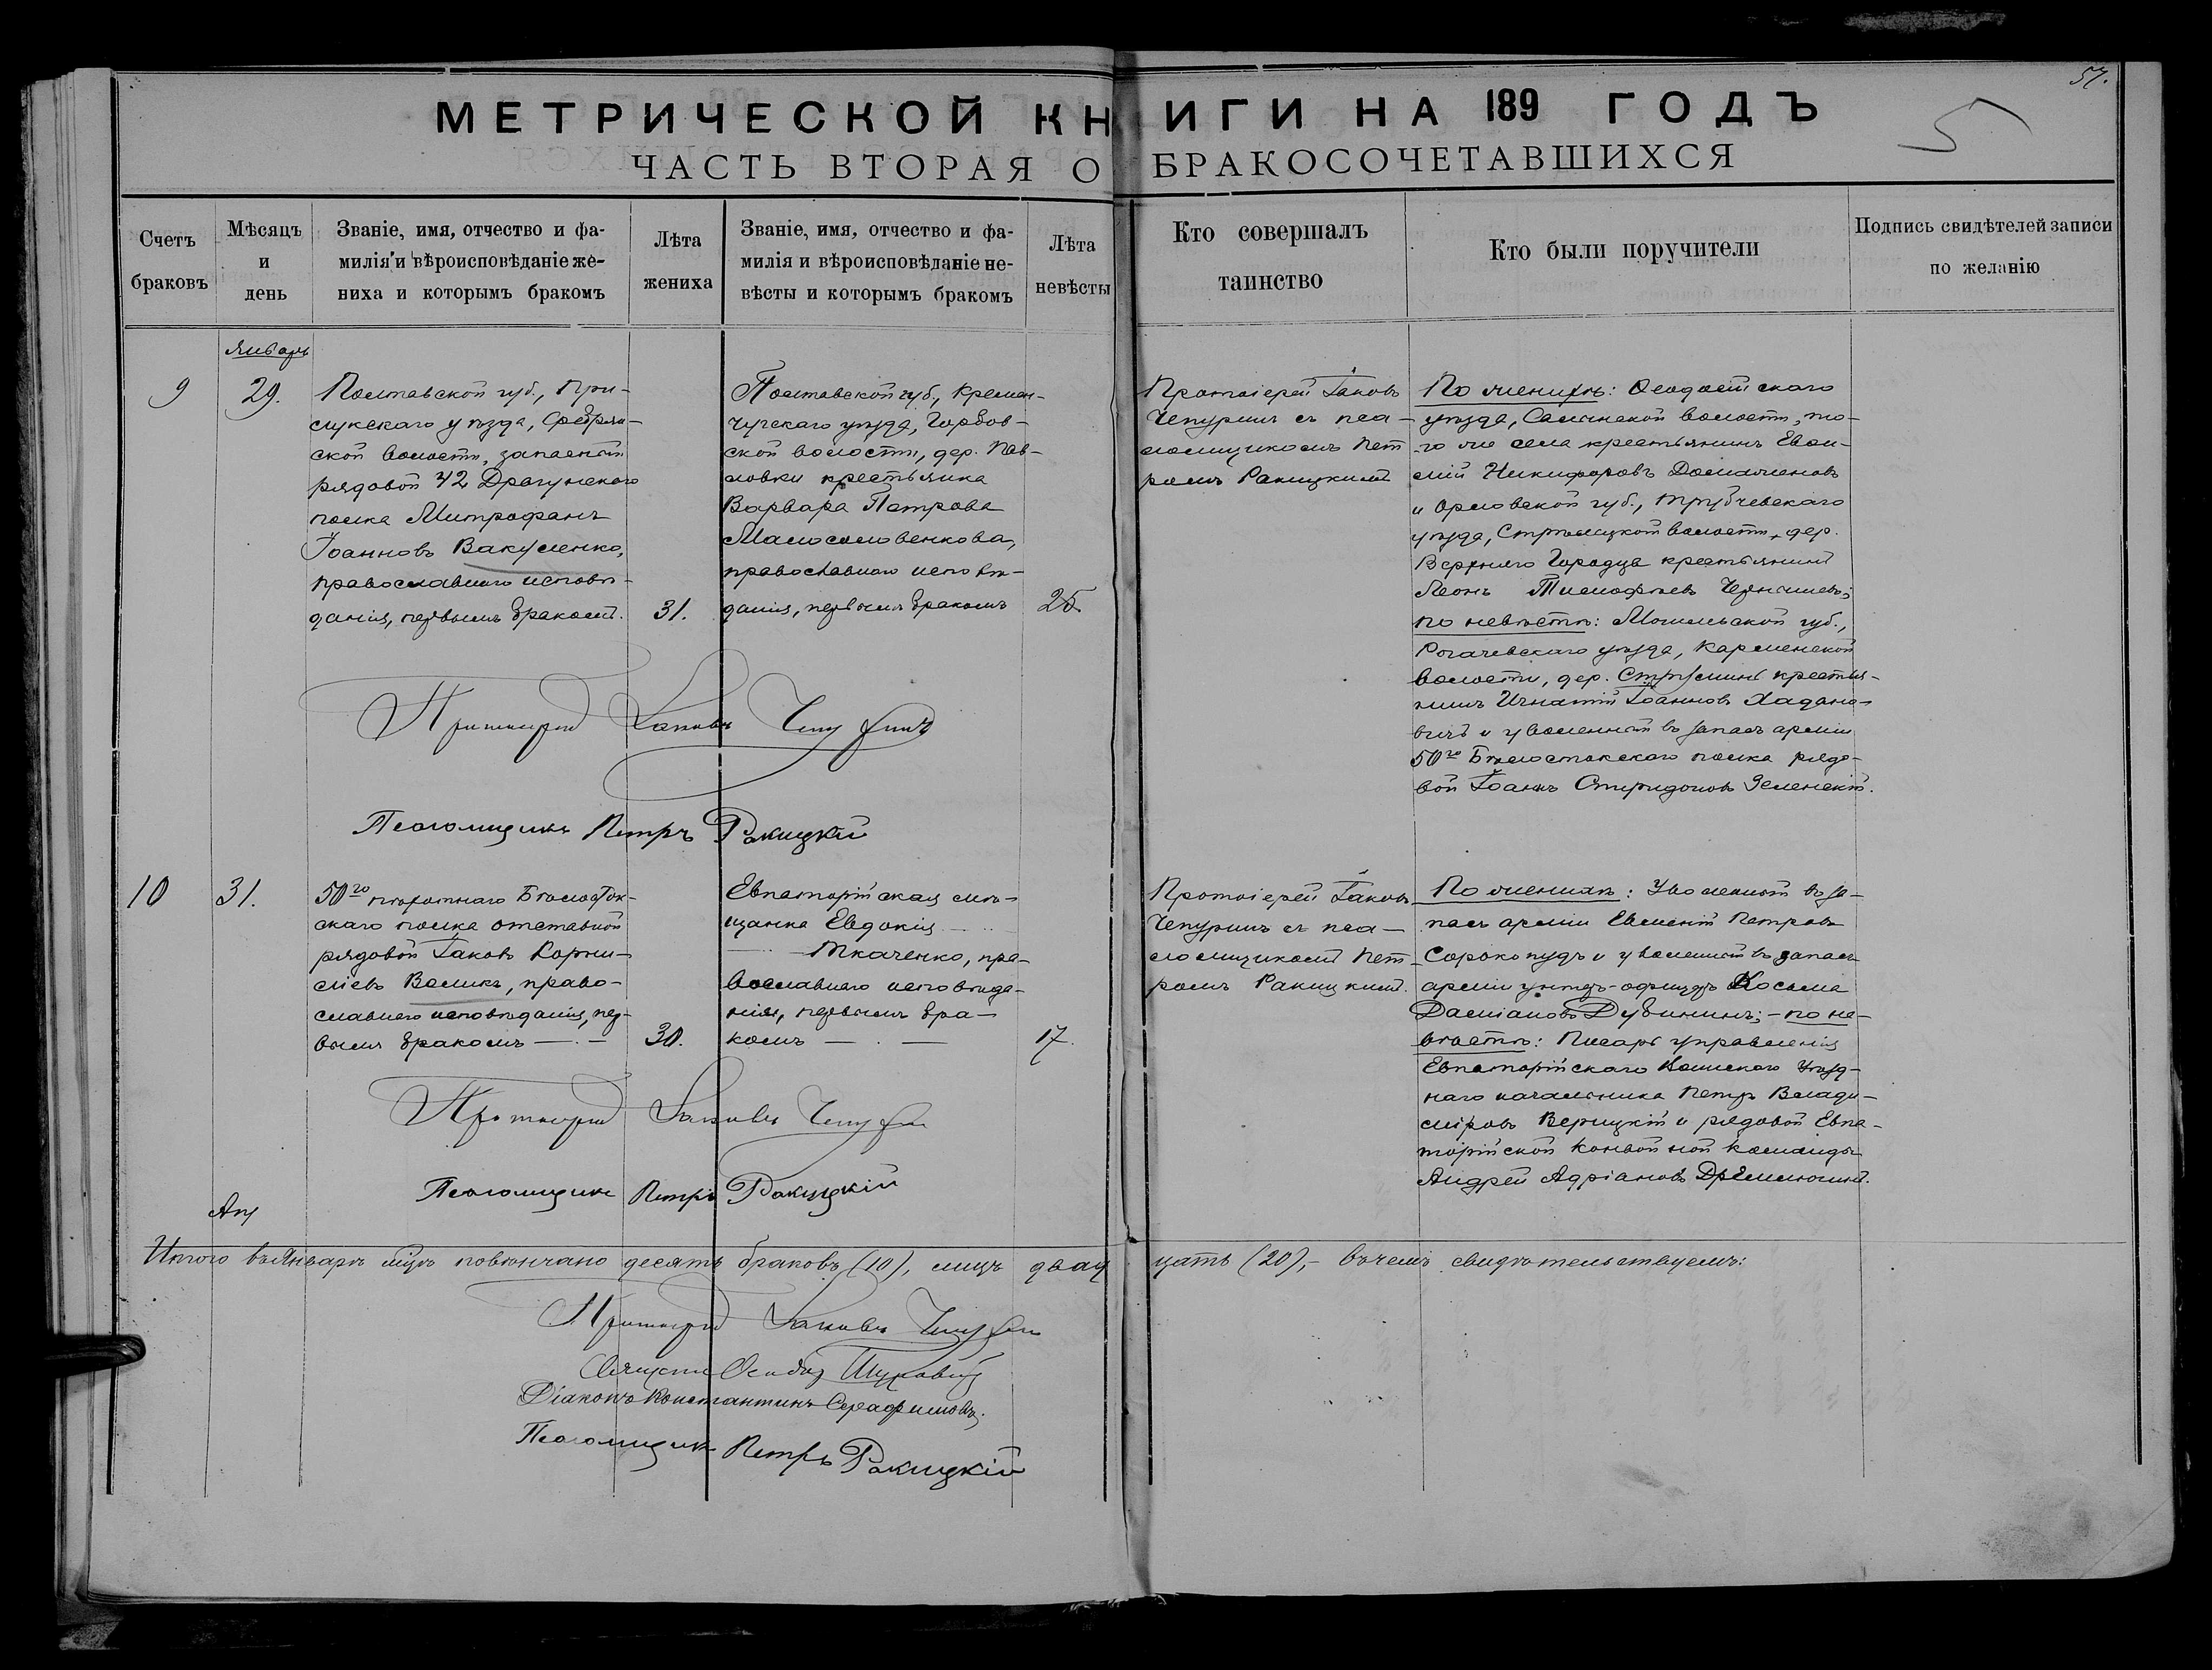 57.
5
МЕТРИЧЕСКОЙ КНИГИ НА 189 ГОДЪ
ЧАСТЬ ВТОРАЯ О БРАКОСОЧЕТАВШИХСЯ
Счетъ браковъ
Мѣсяцъ и день
Званіе, имя, отчество и фа-
милія и вѣроисповѣданіе же-
ниха и которымъ бракомъ
Лѣта жениха
Званіе, имя, отчество и фа-
милія и вѣроисповѣданіе не-
вѣсты и которымъ бракомъ
Лѣта невѣсты
Кто совершалъ таинство
Кто были поручители
Подпись свидѣтелей записи
по желанію
Январь
9
29.
Полтавской губ., При-
лукскаго уѣзда, Сребрян-
ской волости, запасный
рядовой 42 Драгунскаго
полка Митрофанъ
Іоанновъ Вакуленко,
православнаго исповѣ-
данія, первымъ бракомъ.
31.
Полтавской губ., Кремен-
чугскаго уѣзда, Горбов-
ской волости, дер. Пав-
ловки крестьянка
Варвара Петрова
Малосоловенкова,
православнаго исповѣ-
данія, первымъ бракомъ
25
Протоіерей Іаковъ
Чепуринъ съ пса-
ломщикомъ Пет-
ромъ Ракицкимъ
По женихѣ: Ѳеодосійскаго
уѣзда, Салынской волости, то-
го же села крестьянинъ Евѳи-
мій Никифоровъ Доможеновъ
и Орловской губ., Трубчевскаго
уѣзда, Стрѣлицкой волости, дер.
Верхняго Городца крестьянинъ
Леонъ Тимоѳеевъ Чернышевъ;
по невѣстѣ: Могилевской губ.,
Рогачевскаго уѣзда, Карменской
волости, дер. крестья-
нинъ Игнатій Іоанновъ Хадано-
вичъ и уволенный въ запасъ арміи
50го Бѣлостокскаго полка рядо-
вой Іоаннъ Спиридоновъ Зеленскій.
Протоіерей Іаковъ Чепуринъ
Псаломщикъ Петръ Ракицкій
10
31.
50го пѣхотнаго Бѣлосток-
скаго полка отставной
рядовой Іаковъ Корни-
ліевъ Воликъ, право-
славнаго исповѣданія, пер-
вымъ бракомъ
30.
Евпаторійская мѣ-
щанка Евдокія
Ткаченко, пра-
вославнаго исповѣда-
нія, первымъ бра-
комъ
17.
Протоіерей Іаковъ
Чепуринъ съ пса-
ломщикомъ Пет-
ромъ Ракицкимъ.
По женихѣ: Уволенный въ за-
пасъ арміи Евменій Петровъ
Сорокопудъ и уволенный въ запасъ
арміи унтеръ-офицеръ Косьма
Даміановъ Дубининъ; - по не-
вѣстѣ: Писарь управленія
Евпаторійскаго Воинскаго Уѣзд-
наго начальника Петръ Влади-
міровъ Верицкій и рядовой Евпа-
торійской конвойной команды
Андрей Адріановъ Дремлюгинъ.
Протоіерей Іаковъ Чепуринъ
Псаломщикъ Петръ Ракицкій
Итого въ Январѣ мцѣ повѣнчано десять браковъ (10), лицъ двадцать (20), - въ чемъ свидѣтельствуемъ:
Протоіерей Іаковъ Чепуринъ
Діаконъ Константинъ Серафимовъ.
Псаломщикъ Петръ Ракицкій